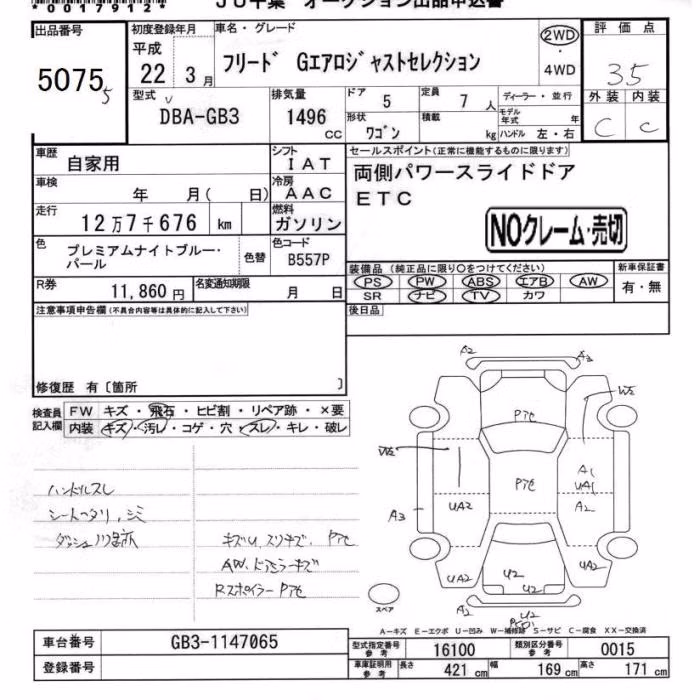 *00179127*
JU千葉 オークション出品申込書
出品番号 50755
初度登録年月 平成 22 3月
車名・グレード フリード Gエアロジャストセレクション
2WD・4WD
評価点 35
外装 C 内装 C
型式 DBA-GB3
排気量 1496 cc
ドア 5
定員 7人
形状 ワゴン
積載 kg
ディーラー・並行
モデル年式 年
ハンドル 左・右
車歴 自家用
シフト IAT
車検 年 月( 日)
冷房 AAC
走行 12万7千676 km
燃料 ガソリン
色 プレミアムナイトブルー・パール
色替
色コード B557P
R券 11,860円
名変通知期限 月 日
セールスポイント(正常に機能するものに限ります)
両側パワースライドドア
ETC
NOクレーム・売切
装備品(純正品に限り○をつけてください)
PS PW ABS エアB AW
SR ナビ TV カワ
新車保証書 有・無
後日品
注意事項申告欄(不具合内容等は具体的に記入して下さい)
修復歴 有〔箇所 〕
検査員記入欄
FW キズ・飛石・ヒビ割・リペア跡・×要
内装 キズ・汚レ・コゲ・穴・スレ・キレ・破レ
ハンドルスレ
シートヘタリ,シミ
キズU,スリキズ,
AW,ドアミラーキズ
Rスポイラー
A2
A3
W2
W2
A1
UA1
UA2
A2
A3
UA2
U2
U2
UA2
A2
U2
スペア
A-キズ E-エクボ U-凹み W-補修跡 S-サビ C-腐食 XX-交換済
車台番号 GB3-1147065
登録番号
型式指定番号 参考 16100
類別区分番号 参考 0015
車庫証明用 参考 長さ 421 cm 幅 169 cm 高さ 171 cm